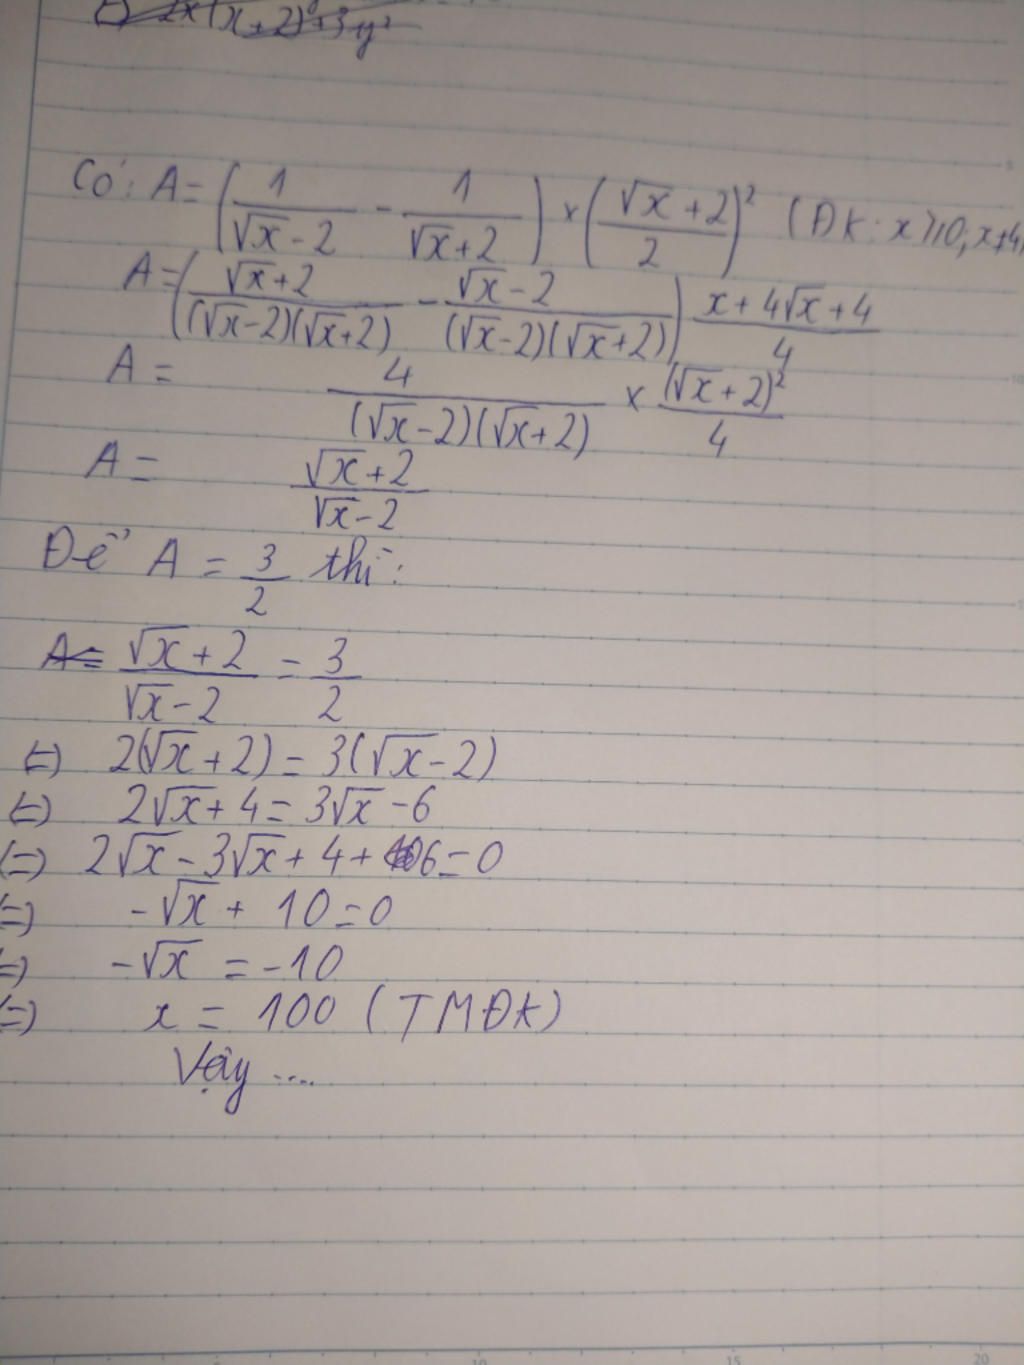 2x(x+2)²+3y²
Có: A = (1/(√x-2) - 1/(√x+2)) × ((√x+2)/2)² (ĐK: x≥0; x≠4)
A = ((√x+2)/((√x-2)(√x+2)) - (√x-2)/((√x-2)(√x+2))) (x+4√x+4)/4
A = 4/((√x-2)(√x+2)) × (√x+2)²/4
A = (√x+2)/(√x-2)
Để A = 3/2 thì:
A= (√x+2)/(√x-2) = 3/2
(=) 2(√x+2) = 3(√x-2)
(=) 2√x+4 = 3√x-6
(=) 2√x-3√x+4+6=0
(=) -√x + 10=0
(=) -√x = -10
(=) x = 100 (TMĐK)
Vậy ....